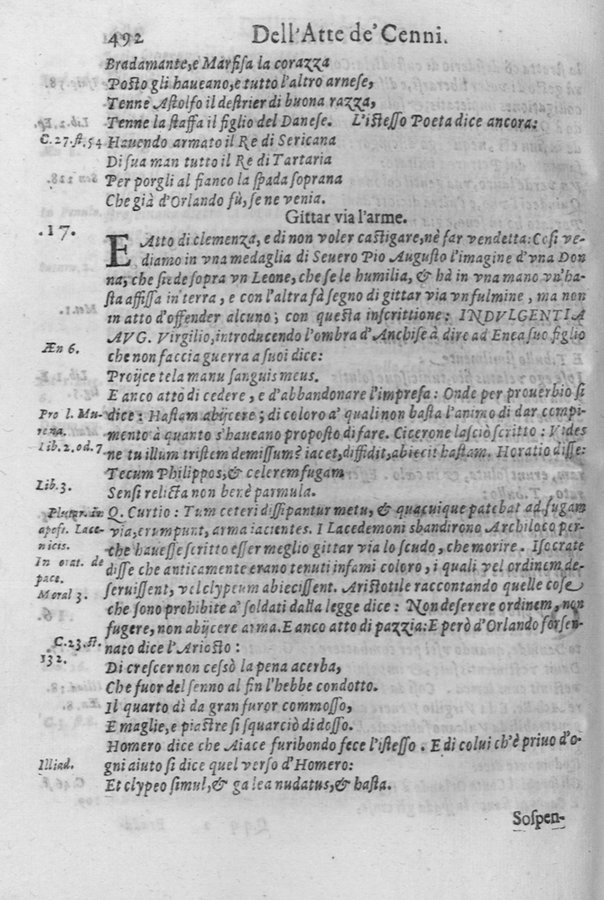 492 Dell'Arte de' Cenni.
Bradamante, e Marfisa la corazza
Posto gli haueano, e tutto l'altro arnese,
Tenne Astolfo il destrier di buona razza,
Tenne la staffa il figlio del Danese. L'istesso Poeta dice ancora:
C.27.st.54 Hauendo armato il Re di Sericana
Di sua man tutto il Re di Tartaria
Per porgli al fianco la spada soprana
Che già d'Orlando fù, se ne venia.
Gittar via l'arme.
.17. E Atto di clemenza, e di non voler castigare, nè far vendetta: Cosi ve-
diamo in vna medaglia di Seuero Pio Augusto l'imagine d'vna Don
na, che siede sopra vn Leone, che se le humilia, & hà in vna mano vn'ha-
sta affissa in terra, e con l'altra fà segno di gittar via vn fulmine, ma non
in atto d'offender alcuno; con questa inscrittione: INDVLGENTIA
AVG. Virgilio, introducendo l'ombra d'Anchise à dire ad Enea suo figlio
Æn 6. che non faccia guerra a suoi dice:
Proijce tela manu sanguis meus.
E anco atto di cedere, e d'abbandonare l'impresa: Onde per prouerbio si
Pro l. Mu- dice: Hastam abijcere; di coloro a' quali non basta l'animo di dar compi-
rena. mento à quanto s'haueano proposto di fare. Cicerone lasciò scritto: Vides
Lib.2.od.7. ne tu illum tristem demissum? iacet, diffidit, abiecit hastam. Horatio disse:
Tecum Philippos, & celerem fugam
Lib.3. Sensi relicta non benè parmula.
Plutar. in Q. Curtio: Tum ceteri dissipantur metu, & quacuique patebat ad fugam
apofs. Lace- via, erumpunt, arma iacientes. I Lacedemoni sbandirono Archiloco per-
nicis. che hauesse scritto esser meglio gittar via lo scudo, che morire. Isocrate
In orat. de disse che anticamente erano tenuti infami coloro, i quali vel ordinem de-
pace. seruissent, vel clypeum abiecissent. Aristotile raccontando quelle cose
Moral 3. che sono prohibite a' soldati dalla legge dice: Non deserere ordinem, non
fugere, non abijcere arma. E anco atto di pazzia: E però d'Orlando forsen-
C.23.st. nato dice l'Ariosto:
132. Di crescer non cessò la pena acerba,
Che fuor del senno al fin l'hebbe condotto.
Il quarto dì da gran furor commosso,
E maglie, e piastre si squarciò di dosso.
Homero dice che Aiace furibondo fece l'istesso. E di colui ch'è priuo d'o-
Illiad. gni aiuto si dice quel verso d'Homero:
Et clypeo simul, & galea nudatus, & hasta.
Sospen-